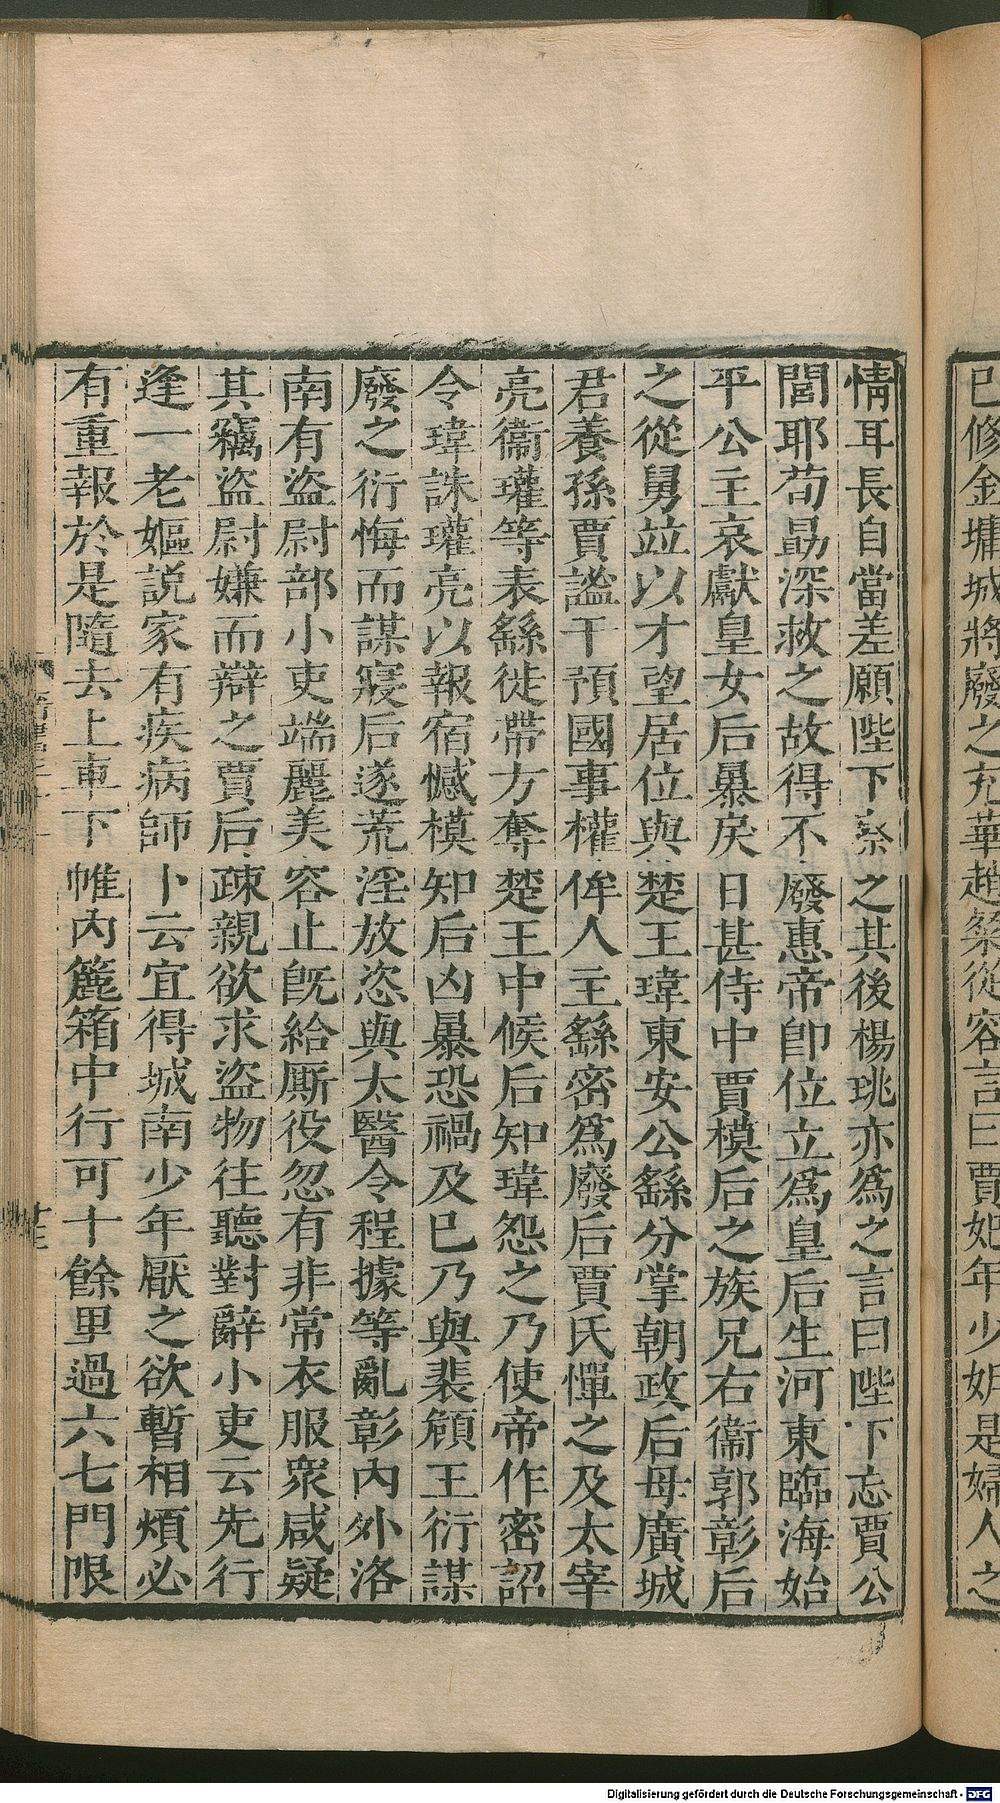 已修金墉城將廢之充華趙粲從容言曰賈妃年少妒是婦人之
情耳長自當差願陛下察之其後楊珧亦爲之言曰陛下忘賈公
閭耶荀勗深救之故得不廢惠帝卽位立爲皇后生河東臨海始
平公主哀獻皇女后暴戾日甚侍中賈模后之族兄右衞郭彰后
之從舅竝以才望居位與楚王瑋東安公繇分掌朝政后母廣城
君養孫賈謐干預國事權侔人主繇密爲廢后賈氏憚之及太宰
亮衞瓘等表繇徙帶方奪楚王中候后知瑋怨之乃使帝作密詔
令瑋誅瓘亮以報宿憾模知后凶暴恐禍及已乃與裴頠王衍謀
廢之衍悔而謀寢后遂荒淫放恣與太醫令程據等亂彰內外洛
南有盜尉部小吏端麗美容止旣給厮役忽有非常衣服衆咸疑
其竊盜尉嫌而辯之賈后疎親欲求盜物往聽對辭小吏云先行
逢一老嫗説家有疾病師卜云宜得城南少年厭之欲暫相煩必
有重報於是隨去上車下帷內簏箱中行可十餘里過六七門限
Digitalisierung gefördert durch die Deutsche Forschungsgemeinschaft - DFG